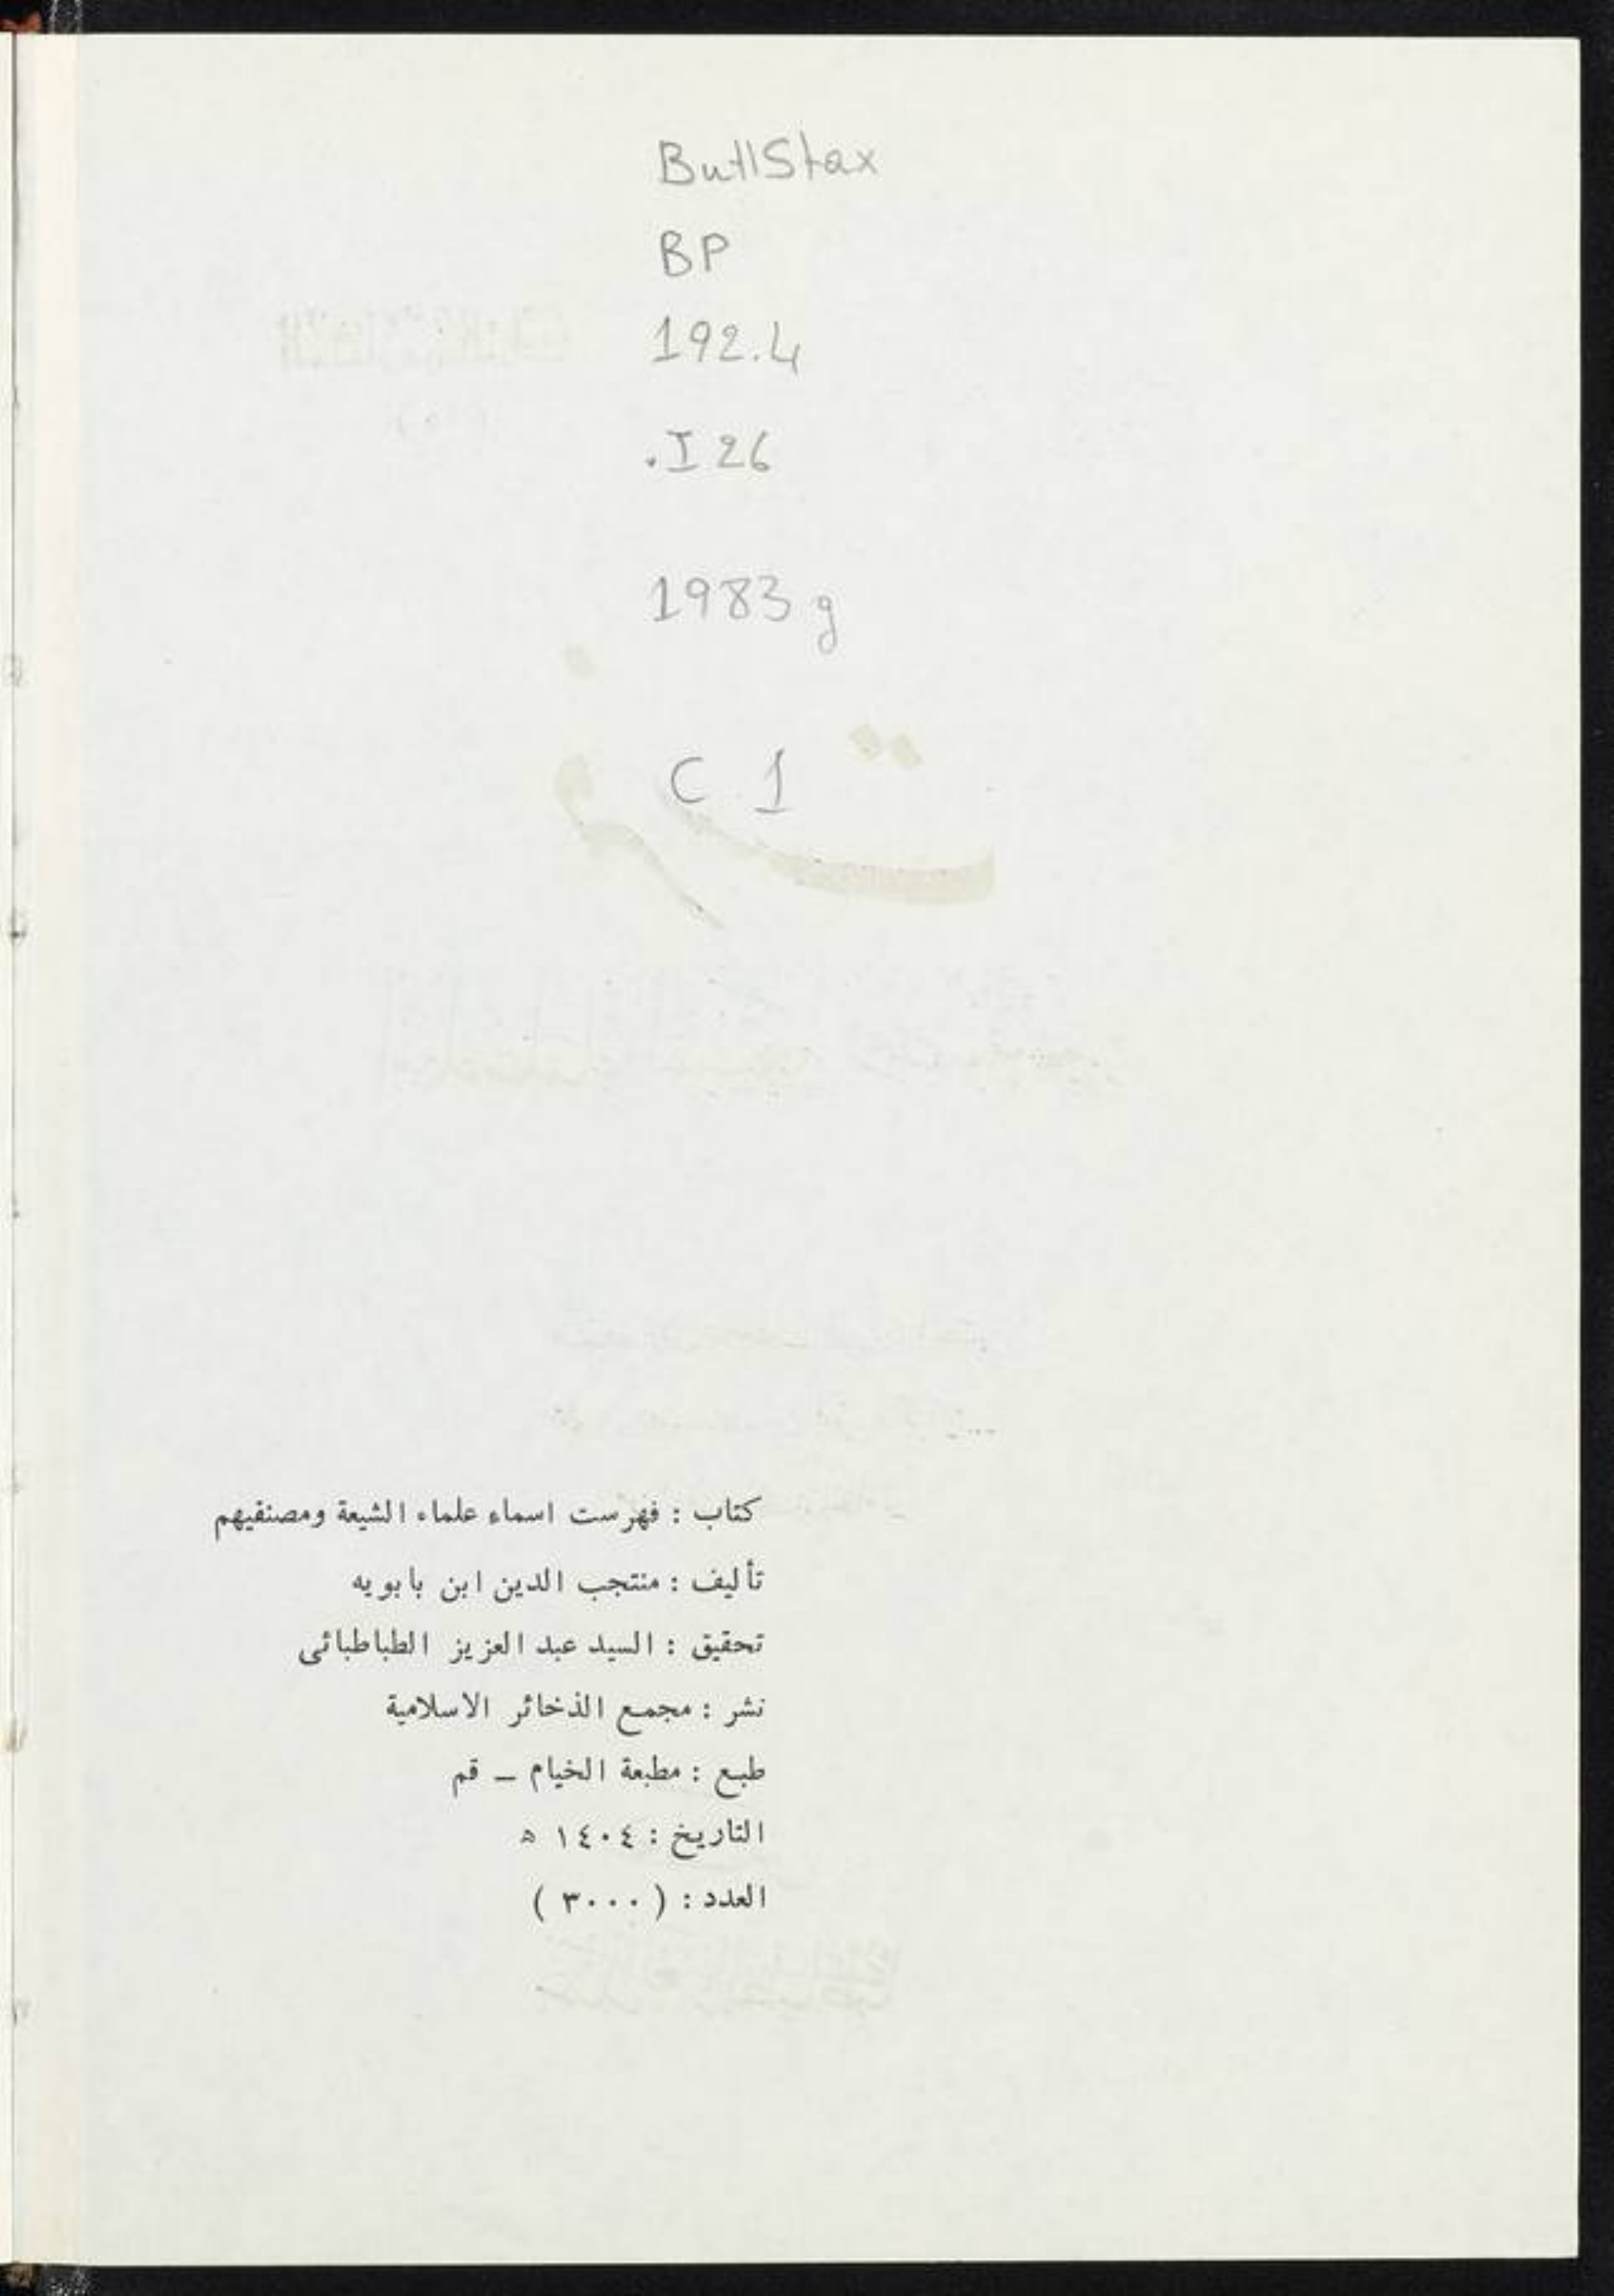 ButlStax
BP
192.4
.I26
1983g
C 1
كتاب : فهرست اسماء علماء الشيعة ومصنفيهم
تأليف : منتجب الدين ابن بابويه
تحقيق : السيد عبد العزيز الطباطبائى
نشر : مجمع الذخائر الاسلامية
طبع : مطبعة الخيام ــ قم
التاريخ : ١٤٠٤ ه
العدد : ( ٣٠٠٠ )